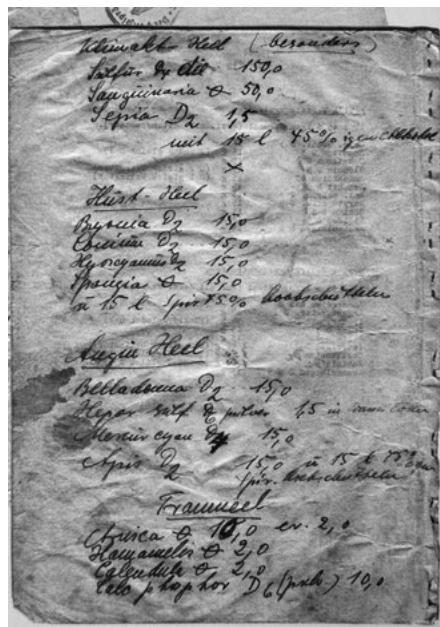 Klimakt-Heel (besonders)
Sulfur D4 dil 150,0
Sanguinaria ⌀ 50,0
Sepia D2 1,5
mit 15 l 45%igen Alkohol
×
Hust-Heel
Bryonia D2 15,0
Conium D2 15,0
Hyoscyamus D2 15,0
Spongia ⌀ 15,0
15 l Spir 45%
Angin Heel
Belladonna D2 15,0
Hepar sulf D6 pulver 1,5 in
Mercur cyan D4 15,0
Apis D2 15,0 15 l
Spir.
Traumeel
Arnica ⌀ 10,0 ev. 2,0
Hamamelis ⌀ 2,0
Calendula ⌀ 2,0
Calc phosphor D6 (pulv.) 10,0